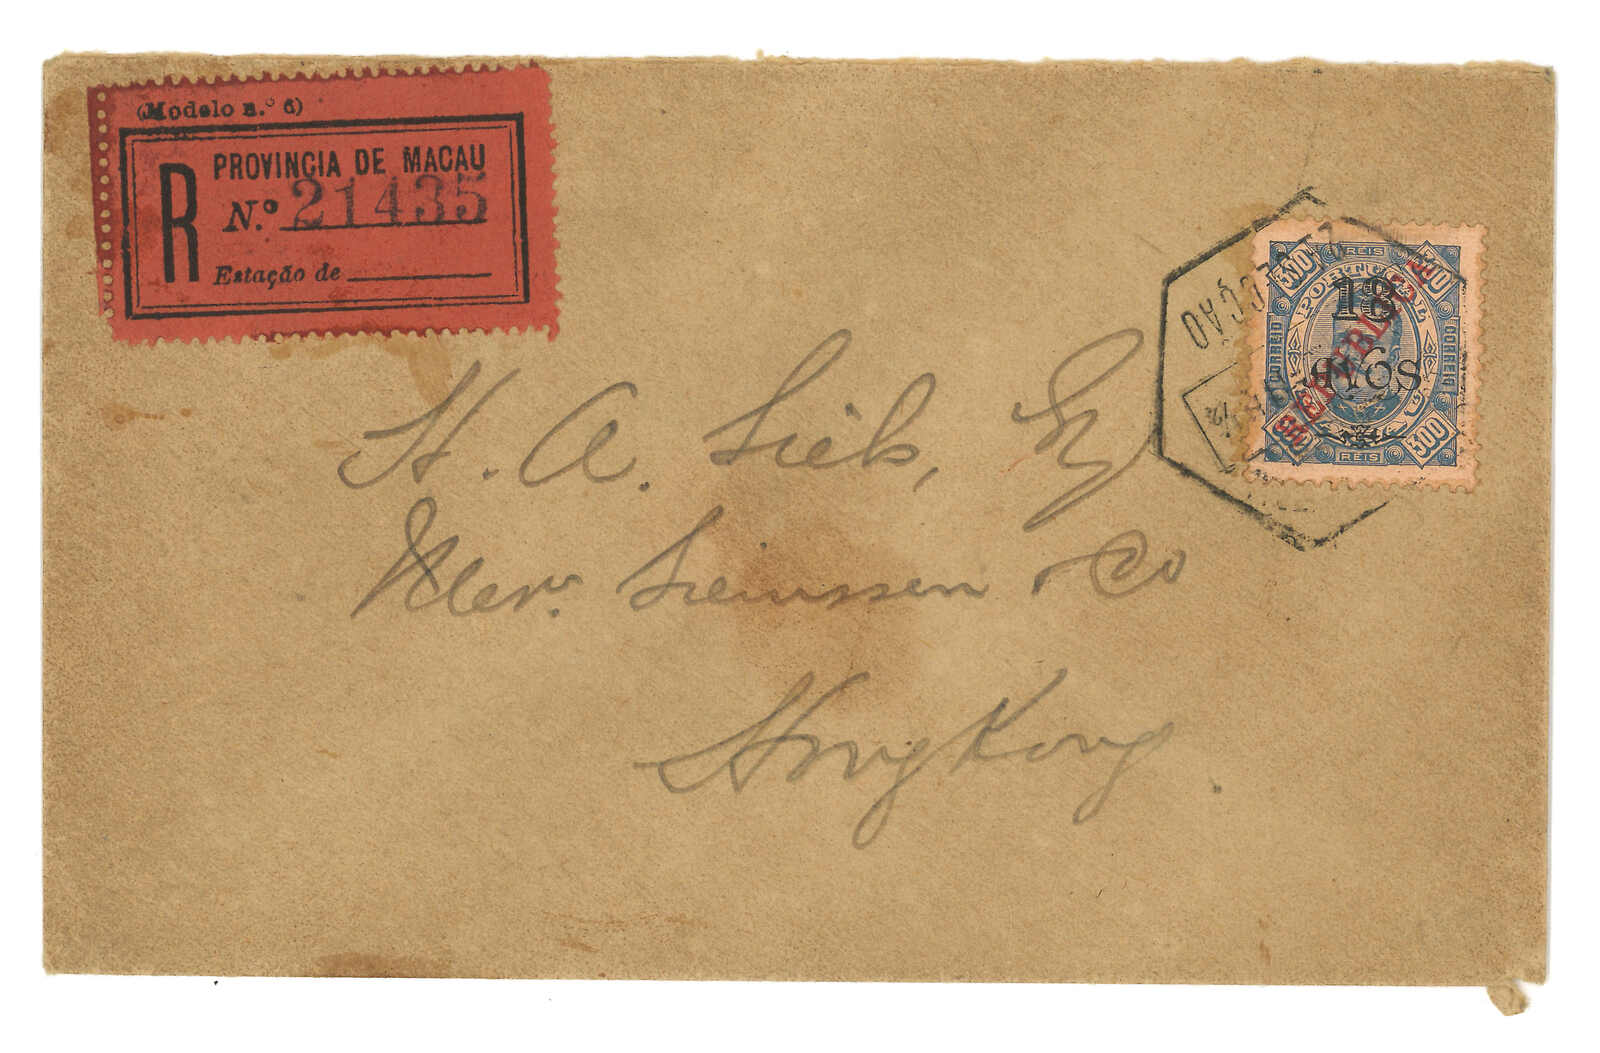 (Modelo n.º 6)
R
PROVINCIA DE MACAU
N.º 21435
Estação de
2ª SECÇÃO
300 REIS 300
PORTUGAL
18
AVOS
REPUBLICA
CORREIO
CORREIO
300 REIS 300
H. A. Siebs, Esq
Messrs. Siemssen & Co
Hong Kong.